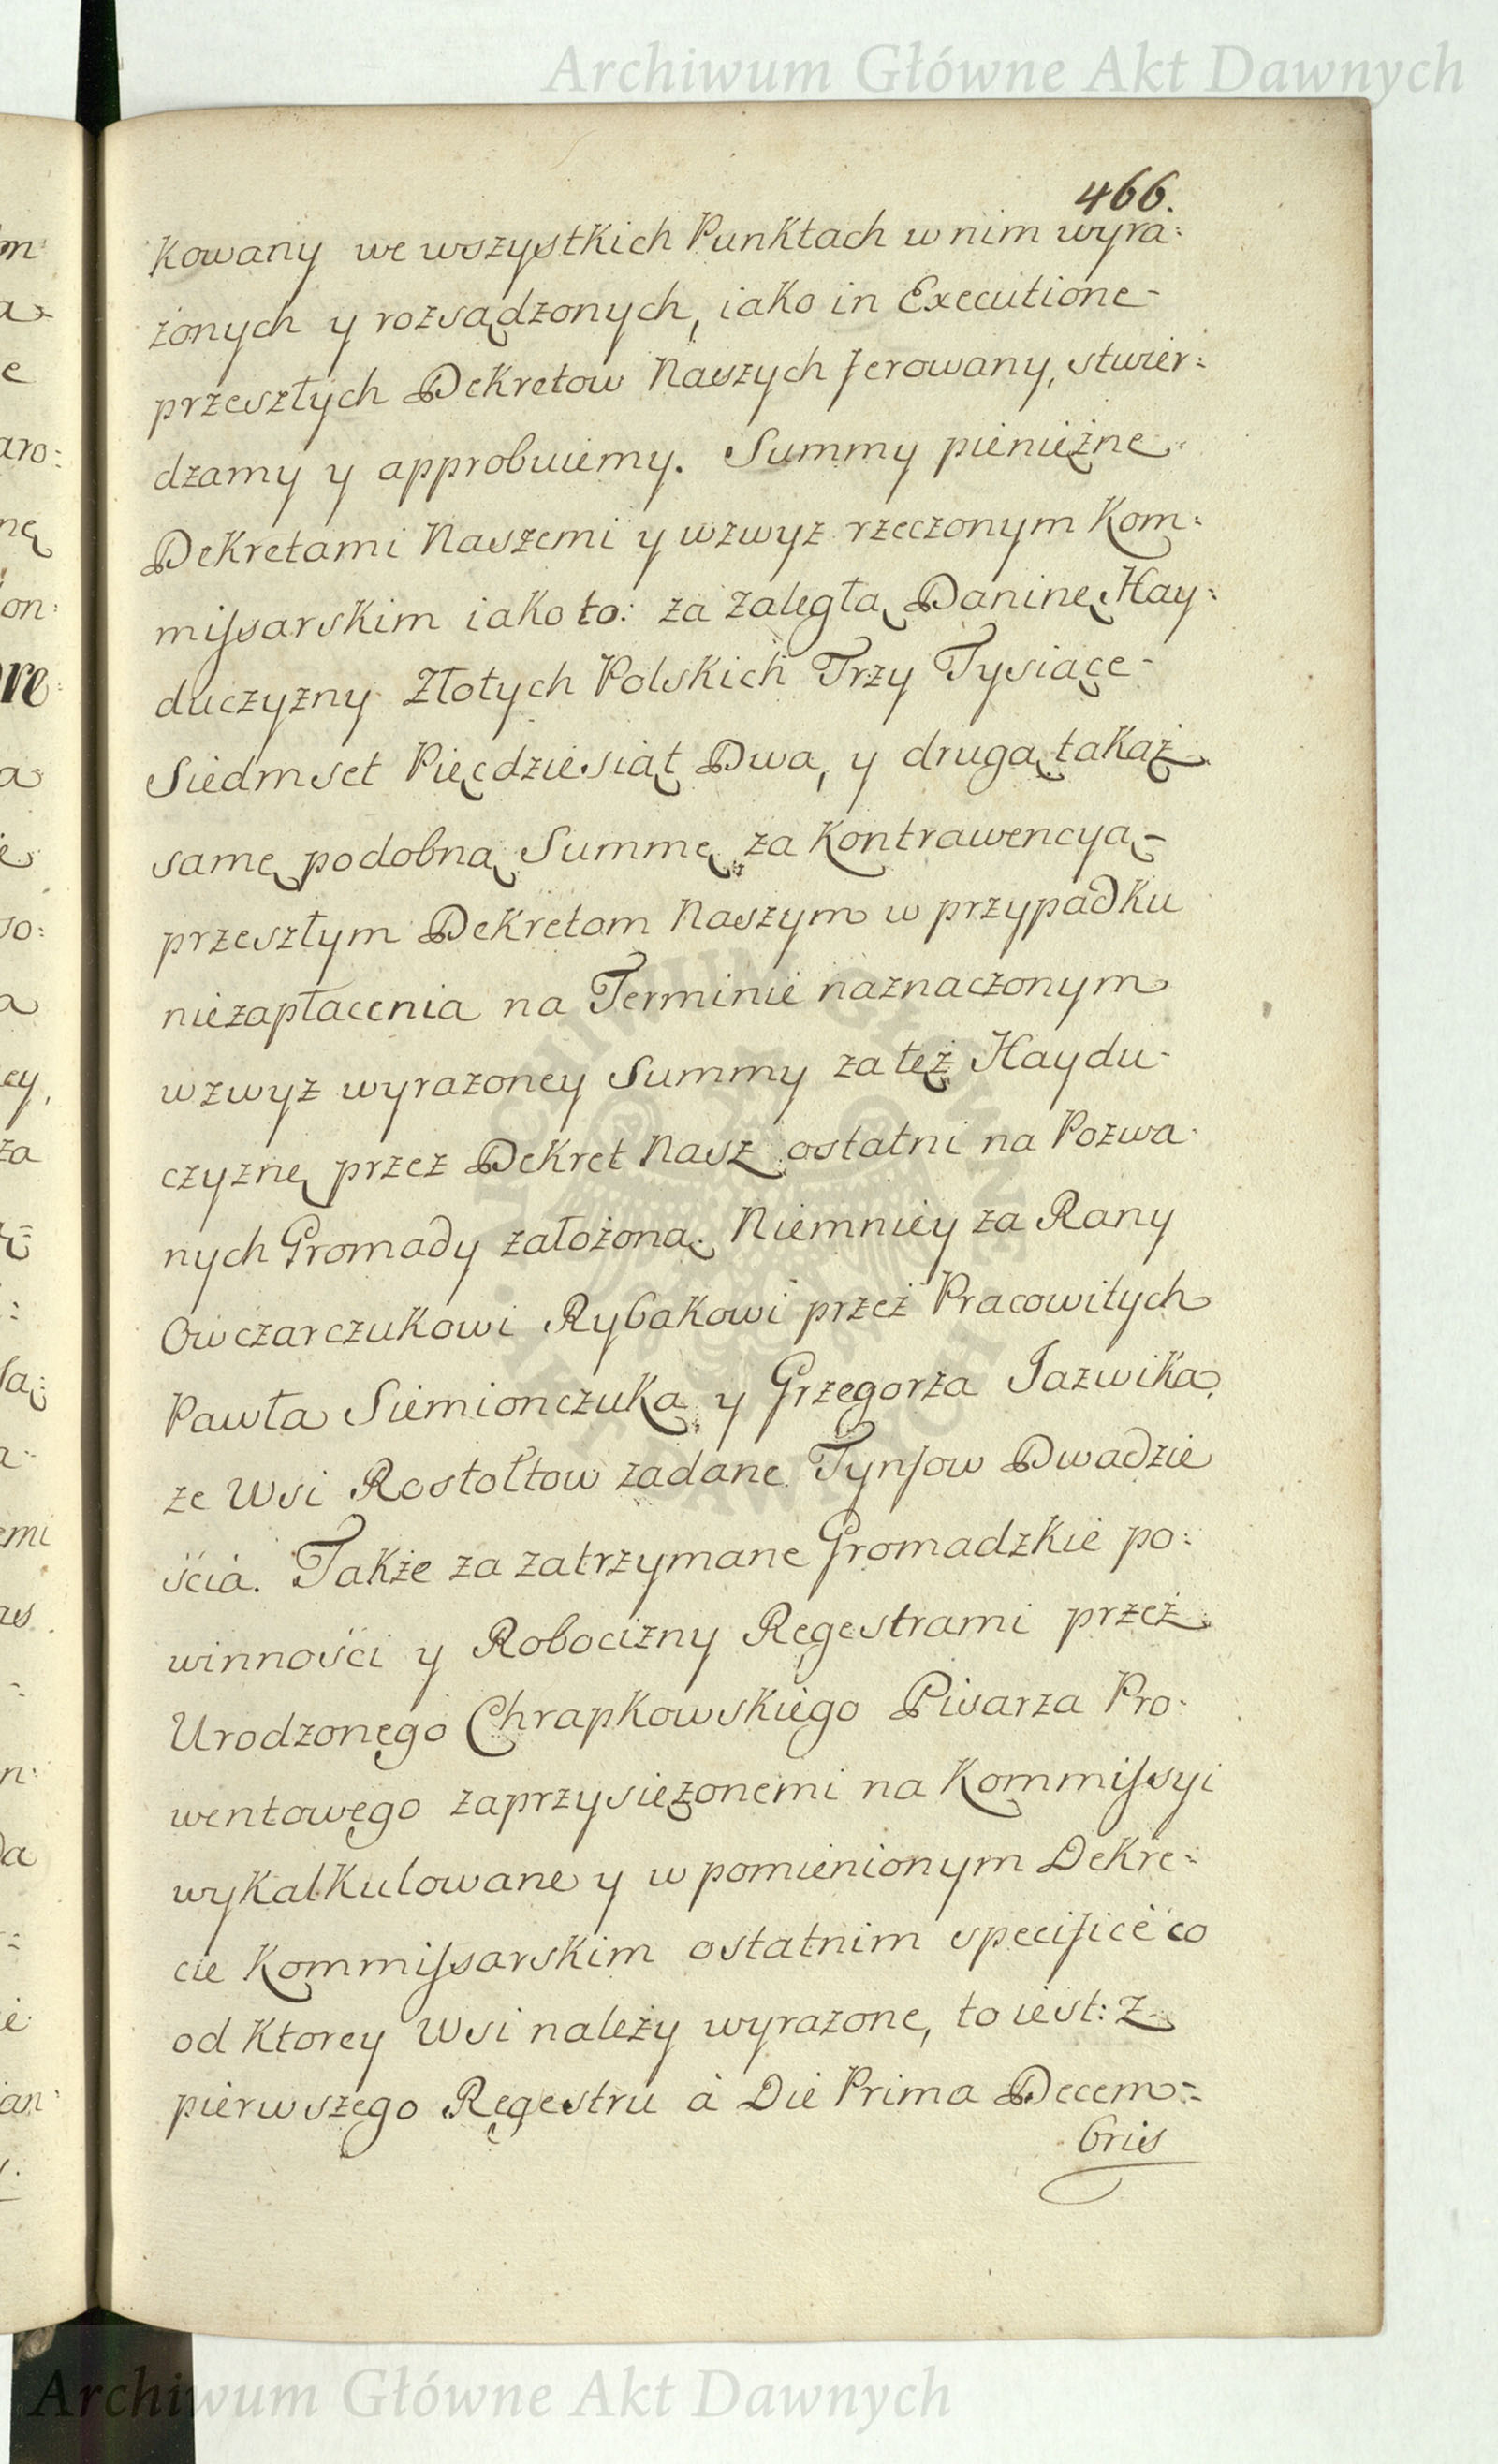 Archiwum Główne Akt Dawnych
466.
Kowany we wszystkich Punktach w nim wyra:
żonych y rozsądzonych, iako in Executione
przeszłych Dekretow Naszych ferowany, stwier:
dzamy y approbuiemy. Summy pieniężne
Dekretami Naszemi y wzwyż rzeczonym Kom:
missarskim iako to: za zaległą Daninę Hay:
duczyzny Złotych Polskich Trzy Tysiące
Siedmset Pięćdziesiąt Dwa, y drugą takąż
samę podobną Summę za Kontrawencyą
przeszłym Dekretom Naszym w przypadku
niezapłacenia na Terminie naznaczonym
wzwyż wyrazoney Summy za tęż Haydu-
czyznę przez Dekret Nasz ostatni na Pozwa-
nych Gromady założoną. Niemniey za Rany
Owczarczukowi Rybakowi przez Pracowitych
Pawła Siemionczuka y Grzegorza Jazwika
ze Wsi Rostołtow zadane Tynfow Dwadzie
ścia. Także za zatrzymane Gromadzkie po:
winności y Robocizny Regestrami przez
Urodzonego Chrapkowskiego Pisarza Pro-
wentowego zaprzysiężonemi na Kommissyi
wykalkulowane y w pomienionym Dekre-
cie Kommissarskim ostatnim specificè co
od Ktorey Wsi należy wyrazone, to iest: Z
pierwszego Regestru à Die Prima Decem-
bris
Archiwum Główne Akt Dawnych